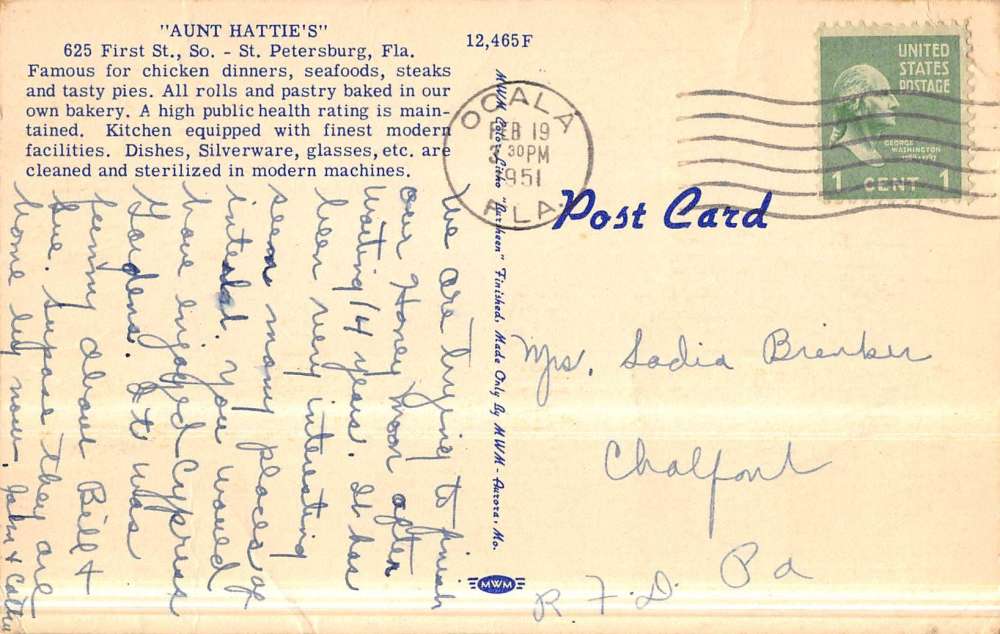 "AUNT HATTIE'S"
625 First St., So. - St. Petersburg, Fla.
Famous for chicken dinners, seafoods, steaks
and tasty pies. All rolls and pastry baked in our
own bakery. A high public health rating is main-
tained. Kitchen equipped with finest modern
facilities. Dishes, Silverware, glasses, etc. are
cleaned and sterilized in modern machines.
12,465F
OCALA
FEB 19
3 30 PM
1951
FLA.
UNITED
STATES
POSTAGE
GEORGE
WASHINGTON
1 CENT 1
Post Card
MWM Color-Litho "Durheen" Finished, Made Only By MWM - Aurora, Mo.
MWM
We are trying to finish
our Honey moon after
waiting 14 years. It has
been very interesting
seen many places of
interest. you would
have enjoyed Cypress
Gardens. It was
funny about Bill +
Sue. Supose they are
home by now. John + Cathr
Mrs. Sadia Brenker
Chalfont
R. F. D. Pa